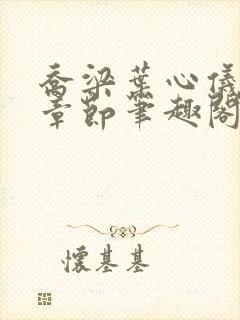 乔梁叶心仪
章节笔趣阁
怀基基